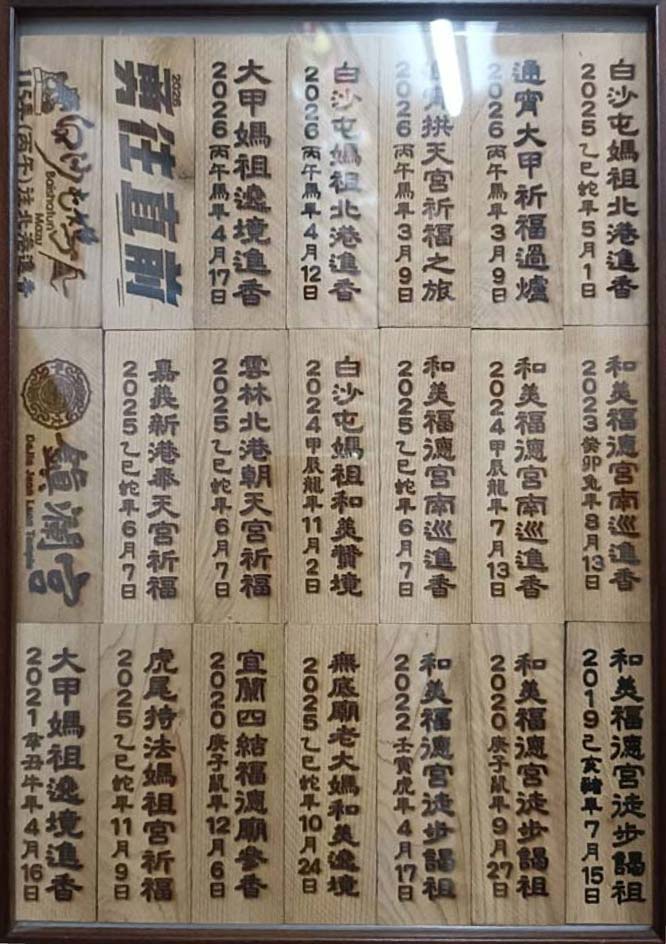 白沙屯媽祖北港進香
2025乙巳蛇年5月1日
通霄大甲祈福過爐
2026丙午馬年3月9日
宵拱天宮祈福之旅
2026丙午馬年3月9日
白沙屯媽祖北港進香
2026丙午馬年4月12日
大甲媽祖遶境進香
2026丙午馬年4月17日
2026
勇往直前
白沙屯媽祖
Baishatun
Mazu
115年(丙午)往北港進香
和美福德宮南巡進香
2023癸卯兔年8月13日
和美福德宮南巡進香
2024甲辰龍年7月13日
和美福德宮南巡進香
2025乙巳蛇年6月7日
白沙屯媽祖和美贊境
2024甲辰龍年11月2日
雲林北港朝天宮祈福
2025乙巳蛇年6月7日
嘉義新港奉天宮祈福
2025乙巳蛇年6月7日
鎮瀾宮
Dajia Jenn Lann Temple
和美福德宮徒步謁祖
2019己亥豬年7月15日
和美福德宮徒步謁祖
2020庚子鼠年9月27日
和美福德宮徒步謁祖
2022壬寅虎年4月17日
無底廟老大媽和美遶境
2025乙巳蛇年10月24日
宜蘭四結福德廟參香
2020庚子鼠年12月6日
虎尾持法媽祖宮祈福
2025乙巳蛇年11月9日
大甲媽祖遶境進香
2021辛丑牛年4月16日